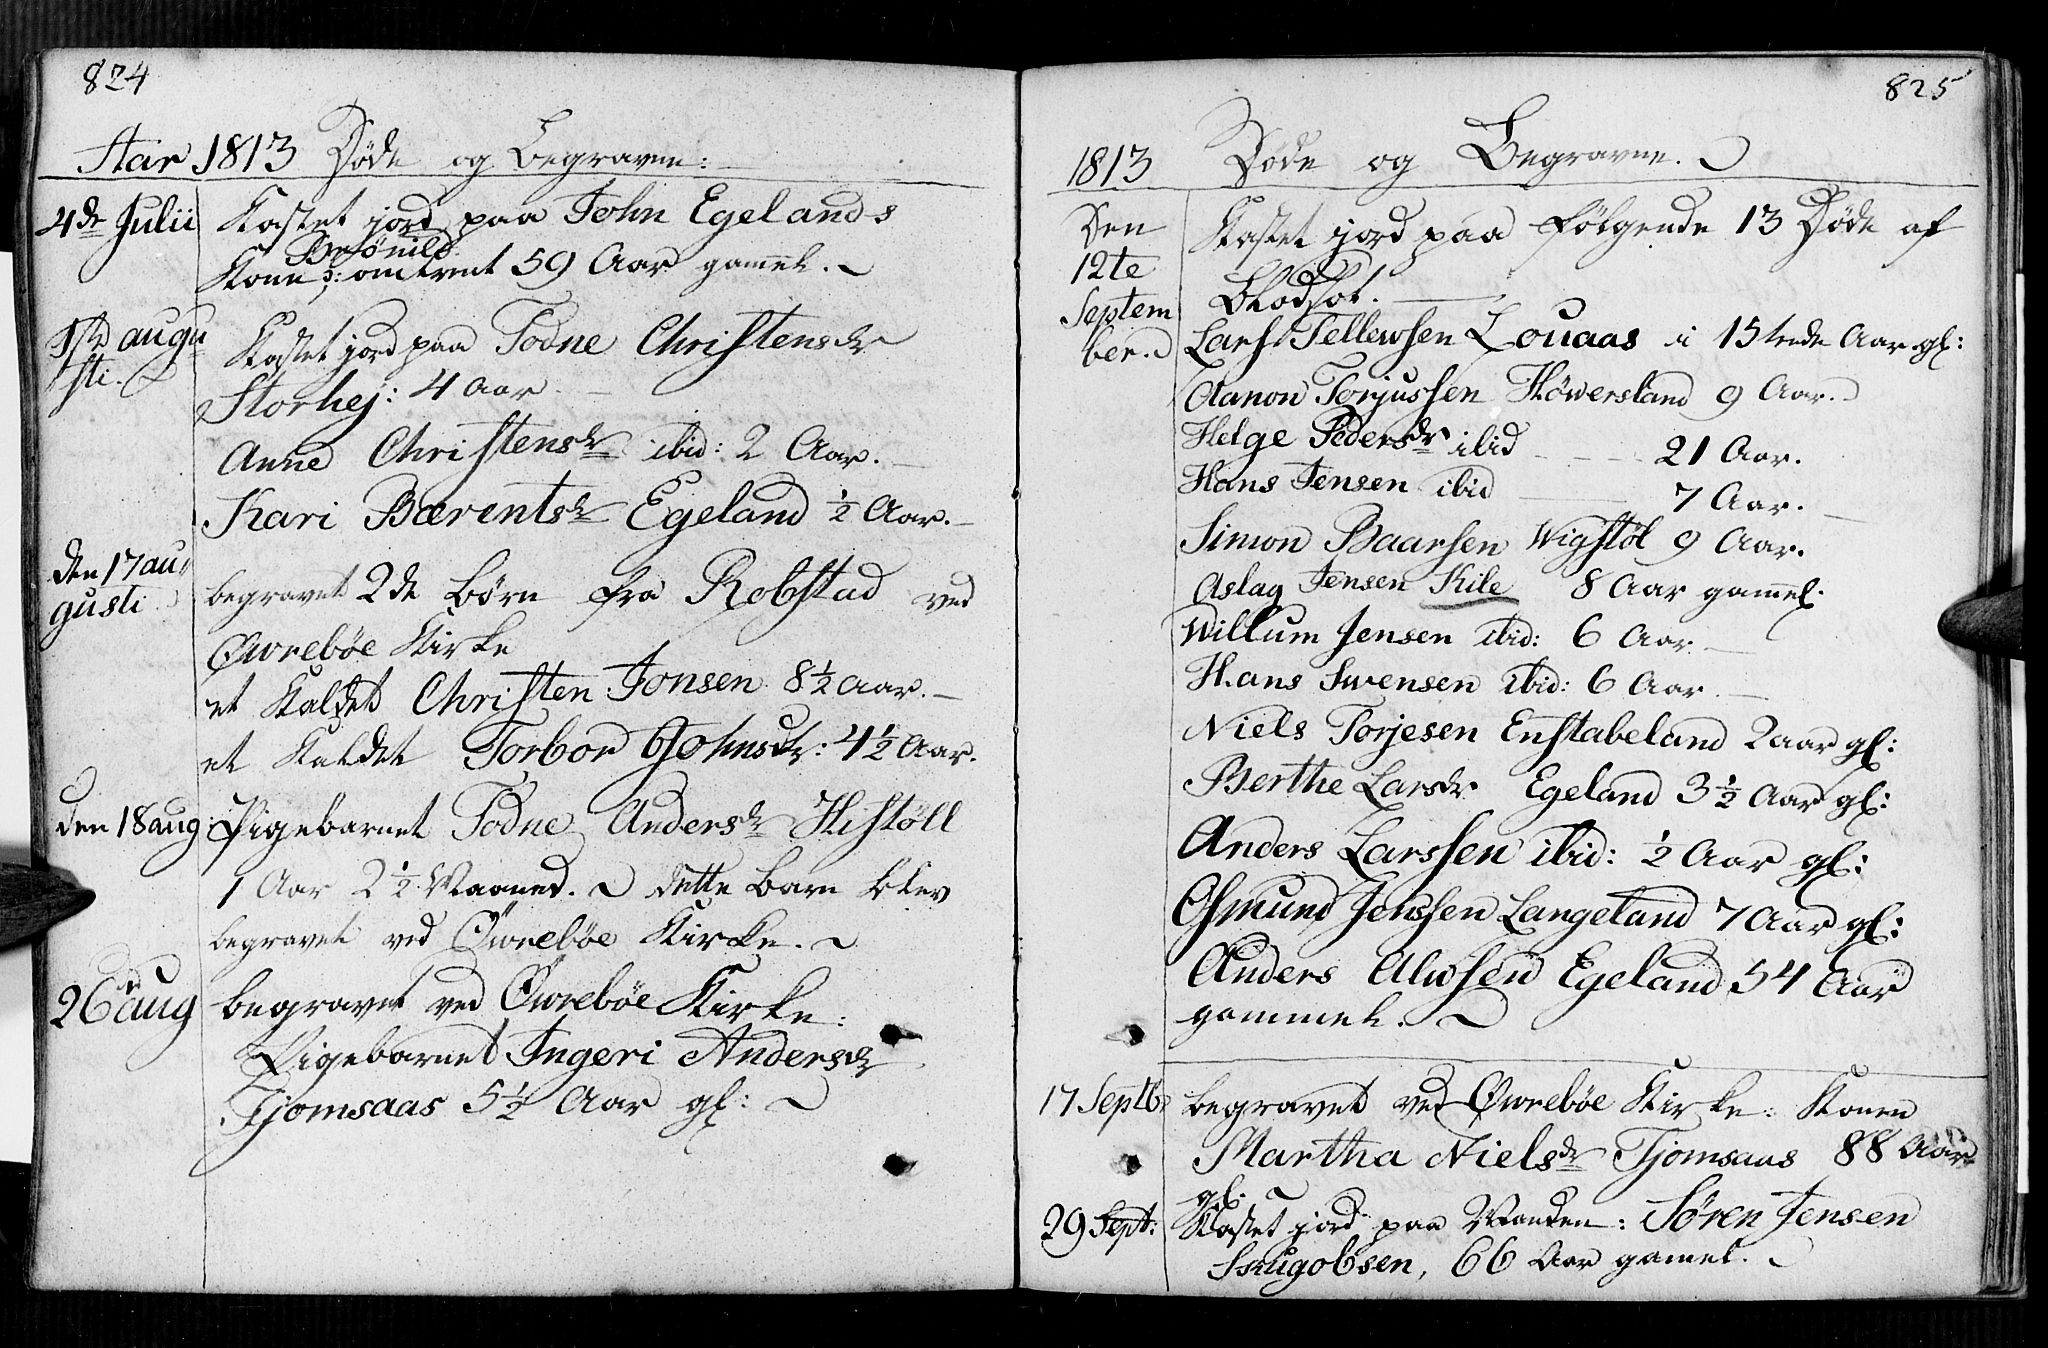 824
Aar 1813 Døde og Begravne:
4de Julii Kastet jord paa John Egelands
Brønild
Kone: omtrent 59 Aar gammel.
1ste augusti. Kastet jord paa Todne Christensdr
Storhej: 4 Aar
Anne Christensdr ibid: 2 Aar.
Kari Bærentsdr Egeland ½ Aar.
den 17 augusti begravet 2de børn fra Robstad ved
Øwrebøe Kirke
et Kaldet Christen Jonsen 8½ Aar.
et Kaldet Torbor Johnsdr: 4½ Aar.
den 18 aug: Pigebarnet Todne Andersdr Histøll
1 Aar 2½ Maaned. dette barn blev
begravet ved Øwrebøe Kirke.
26 aug begravet ved Øwrebøe Kirke:
Pigebarnet Ingeri Andersdr
Tjomsaas 5½ Aar gl:
825
1813 Døde og Begravne.
Den 12te September. Kastet jord paa følgende 13 Døde af
Blodsot.
Lars Tellewsen Louaas i 15tende Aar gl:
Aanon Torjussen Høwersland 9 Aar.
Helge Pedersdr ibid 21 Aar.
Hans Jensen ibid 7 Aar.
Simon Baarsen Wigstøl 9 Aar.
Aslag Jensen Kile 8 Aar gammel.
Willum Jensen ibid: 6 Aar
Hans Swensen ibid: 6 Aar
Niels Torjesen Enstabeland 2 aar gl:
Berthe Larsdr Egeland 3½ Aar gl:
Anders Larssen ibid: ½ Aar gl:
Osmund Jenssen Langeland 7 Aar gl:
Anders Alwsen Egeland 54 Aar
gammel.
17 Septb: begravet ved Øwrebøe Kirke: Konen
Martha Nielsdr Tjomsaas 88 Aar
gl.
29 Sept: Kastet jord paa Manden: Søren Jensen
Skugobsen, 66 Aar gamel.